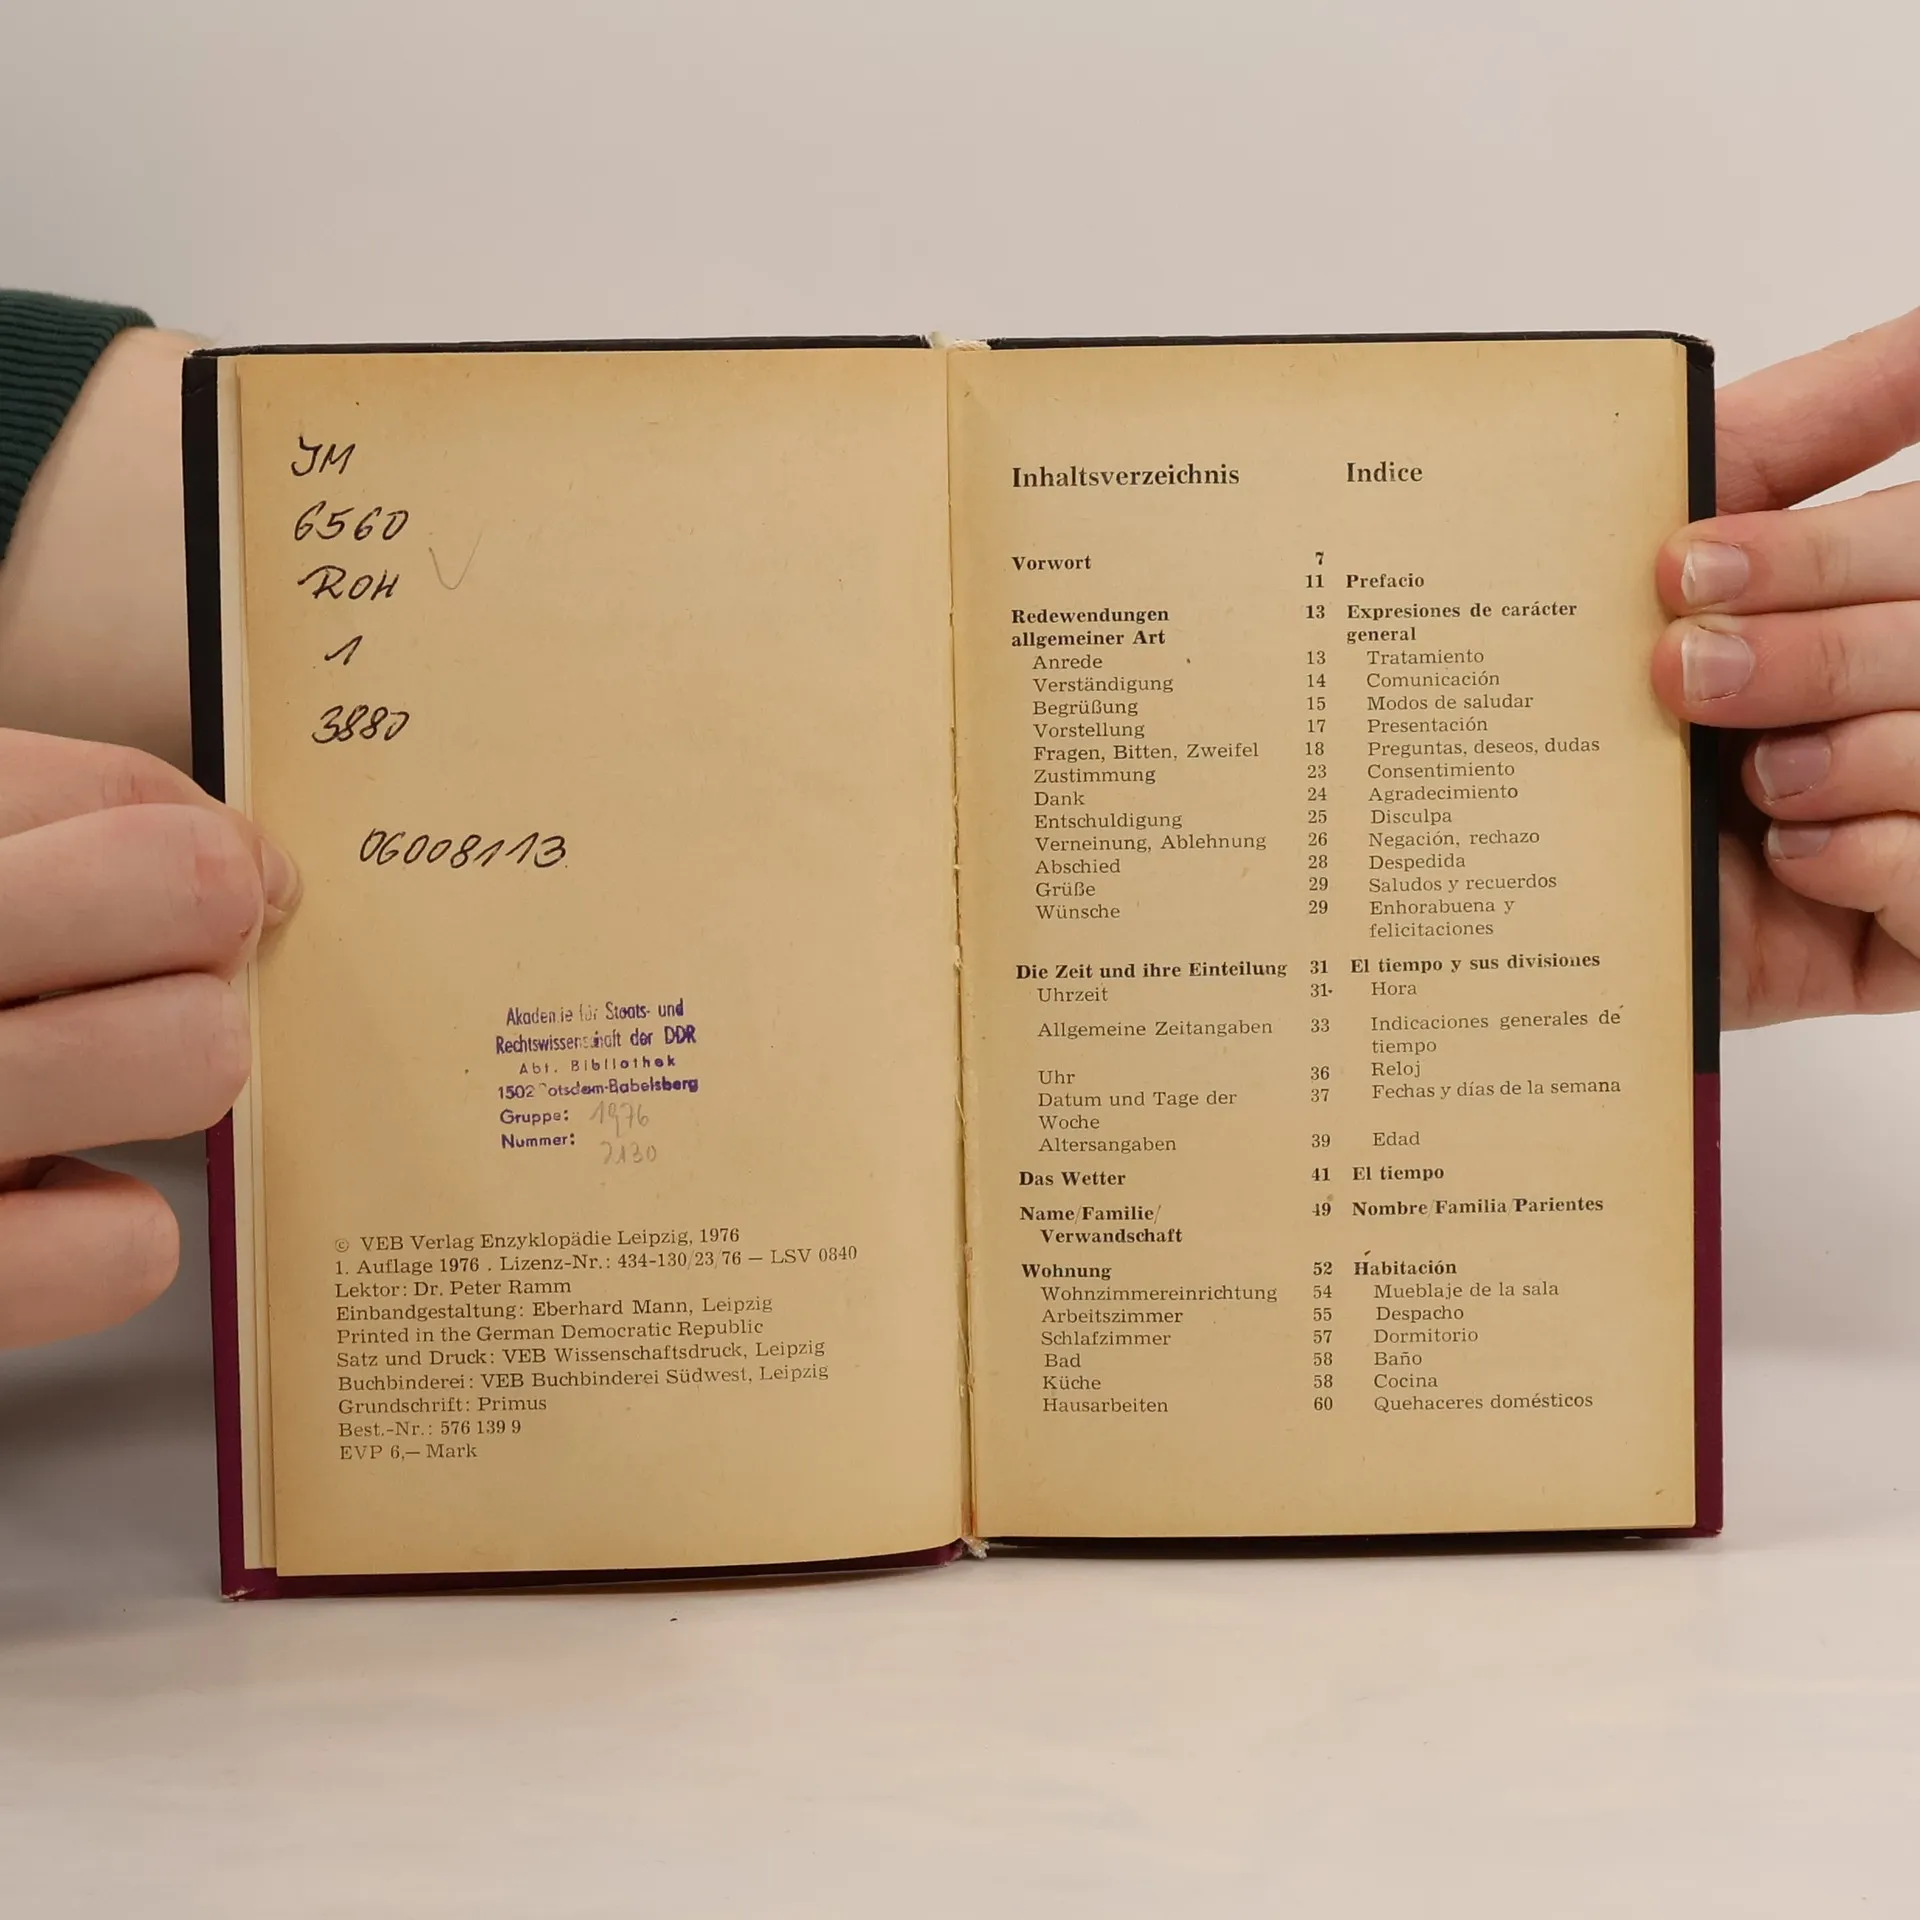 JM
6560
ROH
1
3880
06008113
Akademie für Staats- und
Rechtswissenschaft der DDR
Abt. Bibliothek
1502 Potsdam-Babelsberg
Gruppe: 1976
Nummer: 2130
© VEB Verlag Enzyklopädie Leipzig, 1976
1. Auflage 1976 . Lizenz-Nr.: 434-130/23/76 — LSV 0840
Lektor: Dr. Peter Ramm
Einbandgestaltung: Eberhard Mann, Leipzig
Printed in the German Democratic Republic
Satz und Druck: VEB Wissenschaftsdruck, Leipzig
Buchbinderei: VEB Buchbinderei Südwest, Leipzig
Grundschrift: Primus
Best.-Nr.: 576 139 9
EVP 6,— Mark
Inhaltsverzeichnis Indice
Vorwort 7
11 Prefacio
Redewendungen 13 Expresiones de carácter
allgemeiner Art general
Anrede 13 Tratamiento
Verständigung 14 Comunicación
Begrüßung 15 Modos de saludar
Vorstellung 17 Presentación
Fragen, Bitten, Zweifel 18 Preguntas, deseos, dudas
Zustimmung 23 Consentimiento
Dank 24 Agradecimiento
Entschuldigung 25 Disculpa
Verneinung, Ablehnung 26 Negación, rechazo
Abschied 28 Despedida
Grüße 29 Saludos y recuerdos
Wünsche 29 Enhorabuena y
felicitaciones
Die Zeit und ihre Einteilung 31 El tiempo y sus divisiones
Uhrzeit 31 Hora
Allgemeine Zeitangaben 33 Indicaciones generales de
tiempo
Uhr 36 Reloj
Datum und Tage der 37 Fechas y días de la semana
Woche
Altersangaben 39 Edad
Das Wetter 41 El tiempo
Name/Familie/ 49 Nombre/Familia/Parientes
Verwandschaft
Wohnung 52 Habitación
Wohnzimmereinrichtung 54 Mueblaje de la sala
Arbeitszimmer 55 Despacho
Schlafzimmer 57 Dormitorio
Bad 58 Baño
Küche 58 Cocina
Hausarbeiten 60 Quehaceres domésticos